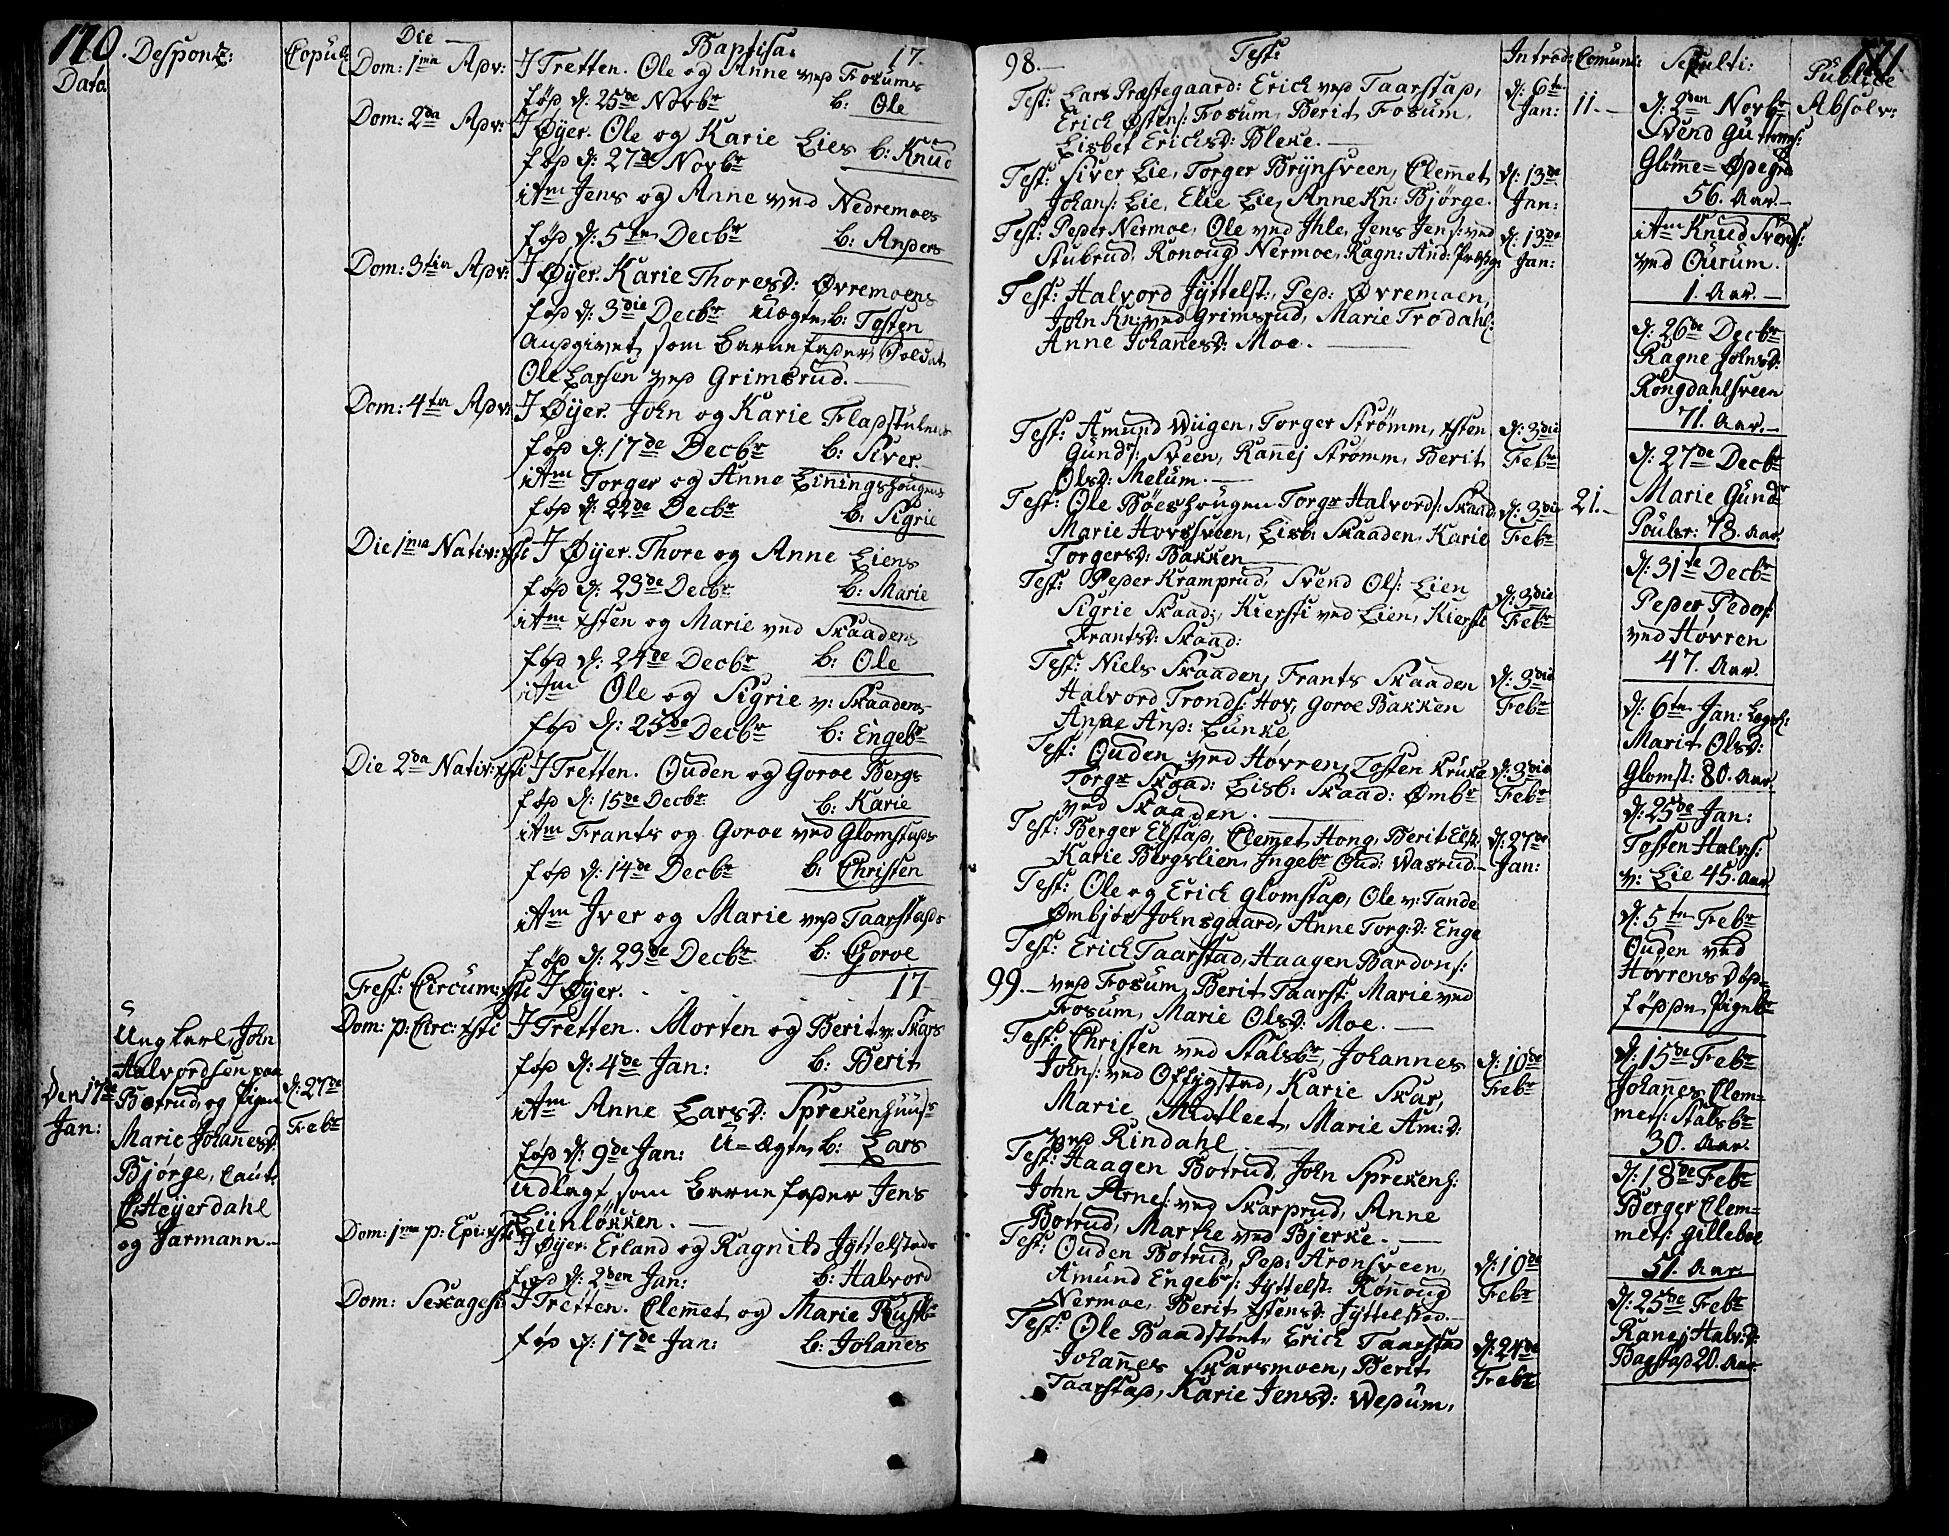 170
Data
Desponz:
Copul:
Die
Baptisa:
17.
Dom: 1ma Adv: I Tretten. Ole og Anne ved Fosums
fød d: 25de Novbr b: Ole
Dom: 2da Adv: I Øyer. Ole og Karie Lies b: Knud
fød d: 27de Novbr
itm Jens og Anne ved Nedremoes
fød d: 5te Decbr b: Anders
Dom: 3tia Adv: I Øyer. Karie Thoresd: Øvremoens
fød d: 3die Decbr uægte b: Tosten
Andgivet som Barnefader Soldat
Ole Larsen ved Grimsrud.
Dom: 4ta Adv: I Øyer. John og Karie Fladstulens
fød d: 17de Decbr b: Siver.
itm Torger og Anne Liningshougens
fød d: 22de Decbr b: Sigrie
Die 1ma Nativ: xsti I Øyer. Thore og Anne Liens
fød d: 23de Decbr b: Marie
itm xsten og Marie ved Skaadens
fød d: 24de Decbr b: Ole
itm Ole og Sigrie v: Skaadens
fød d: 25de Decbr b: Engebr
Die 2da Nativ: xsti I Tretten. Ouden og Goroe Bergs
fød d: 15de Decbr b: Karie
itm Frants og Goroe ved Glomstads
fød d: 14de Decbr b: Christen
itm Iver og Marie ved Taarstads
fød d: 23de Decbr b: Goroe
Fest: Circum: xsti I Øyer. 17
Dom: p: Circ: xsti I Tretten. Morten og Berit v: Skars
fød d: 4de Jan: b: Berit
itm Anne Larsd: Sprekenhuus
fød d: 9de Jan: U=ægte b: Lars
Udlagt som Barnefader Jens
Liinløkken.
Dom: 1ma p: Epi: xsti I Øyer. Erland og Ragnild Jyttelstads
fød d: 2den Jan: b: Halvord
Dom: Sexages: I Tretten. Clemet og Marie Rustbr
fød d: 17de Jan: b: Johanes
Den 17de
Jan:
Ungkarl John
Halvordsen paa
Botrud og Pigen
Marie Johanesd:
Bjørge, Caut:
C: Heyerdahl
og Jarmann.
d: 27de
Febr
98.
Test:
Introd:
Comuni:
Sepulti:
Publice
Absolv:
171
Test: Lars Præstegaard: Erich ved Taarstad,
Erich Østens: Fosum, Berit Fosum,
Lisbet Ericksd: Bleke.
d: 6te
Jan:
11.
Test: Siver Lie, Torger Brynsveen, Clemet
Johans: Lie, Elie Lie, Anne Kn: Bjørge.
d: 13de
Jan:
Test: Peder Nermoe, Ole ved Ihle, Jens Jens: ved
Stubrud, Ronoug Nermoe, Ragn: And: Prestg:
d: 13de
Jan:
Test: Halvord Jyttelst:, Ped: Øvremoen,
John Kn: ved Grimsrud, Marie Trodahl:
Anne Johanesd: Moe.
Test: Amund Wiigen, Torger Strømm, xsten
Gunds: Sveen, Ranej Strømm, Berit
Olsd: Melum.
d: 3die
Febr
Test: Ole Bøeshougen Torgr Halvords: Skaad:
Marie Hovssveen, Lisb: Skaaden, Karie
Torgersd: Bakken
d: 3die
Febr
21.
Test: Peder Kramprud, Svend Ols: Lien
Sigrie Skaad:, Kiersti ved Lien, Kiersti
Frantsd: Skaad:
d: 3die
Febr
Test: Niels Skaaden, Frants Skaaden
Halvord Tronds: Hov, Goroe Bakken
Anne And: Lunke
d: 3die
Febr
Test: Ouden ved Høvren, Tosten Kruke
Torgr Skaad: Lisb: Skaad: Ømbr
ved Skaaden.
d: 3die
Febr
Test: Berger Elstad, Clemet Hong, Berit Elst:
Karie Bergslien, Ingebr Oud: Wasrud.
d: 27de
Jan:
Test: Ole og Erich Glomstad, Ole v: Tande
Ømbjør Johnsgaard, Anne Torg:d: Enge
Test: Erich Taarstad, Haagen Bardons:
99. ved Fosum, Berit Taarst: Marie ved
Fosum, Marie Olsd: Moe.
Test: Christen ved Stalsbr, Johannes
Johns: ved Offigstad, Karie Skar,
Marie Midtleet, Marie Am:d:
ved Rindahl
d: 10de
Febr
Test: Haagen Botrud, John Sprekenh:
John Arnes: ved Skarprud, Anne
Botrud, Marthe ved Bjerke.
Test: Ouden Botrud, Ped: Aronsveen,
Amund Engebrs: Jyttelst: Rønnoug
Nermoe, Berit xstensd: Jyttelstad.
d: 10de
Febr
Test: Ole Baadstønt, Erich Taarstad
Johannes Skarsmoen, Berit
Taarstad, Karie Jensd: Wedum,
d: 24de
Febr
d: 2den Novbr
Svend Guttorms:
Glømme=Ødegrd
56. Aar.
itm Knud Svens:
ved Ourum.
1. Aar.
d: 26de Decbr
Ragne Johnsd:
Rongdahlsveen
71. Aar.
d: 27de Decbr
Marie Gundr
Poulsr: 73. Aar
d: 31te Decbr
Peder Peders:
ved Høvren
47. Aar.
d: 6te Jan: Legds:
Marit Olsd:
Glomst: 80. Aar
d: 25de Jan:
Tosten Halvs:
v: Lie 45. Aar
d: 5te Febr
Ouden ved
Høvrens Død=
fødde Pigebr
d: 15de Febr
Johanes Clem=
mets: Stalsbr
30. Aar.
d: 18de Febr
Berger Clem=
mets: Gilleboe
51. Aar
d: 25de Febr
Ranej Halv:d:
Bagstad 20. Aar